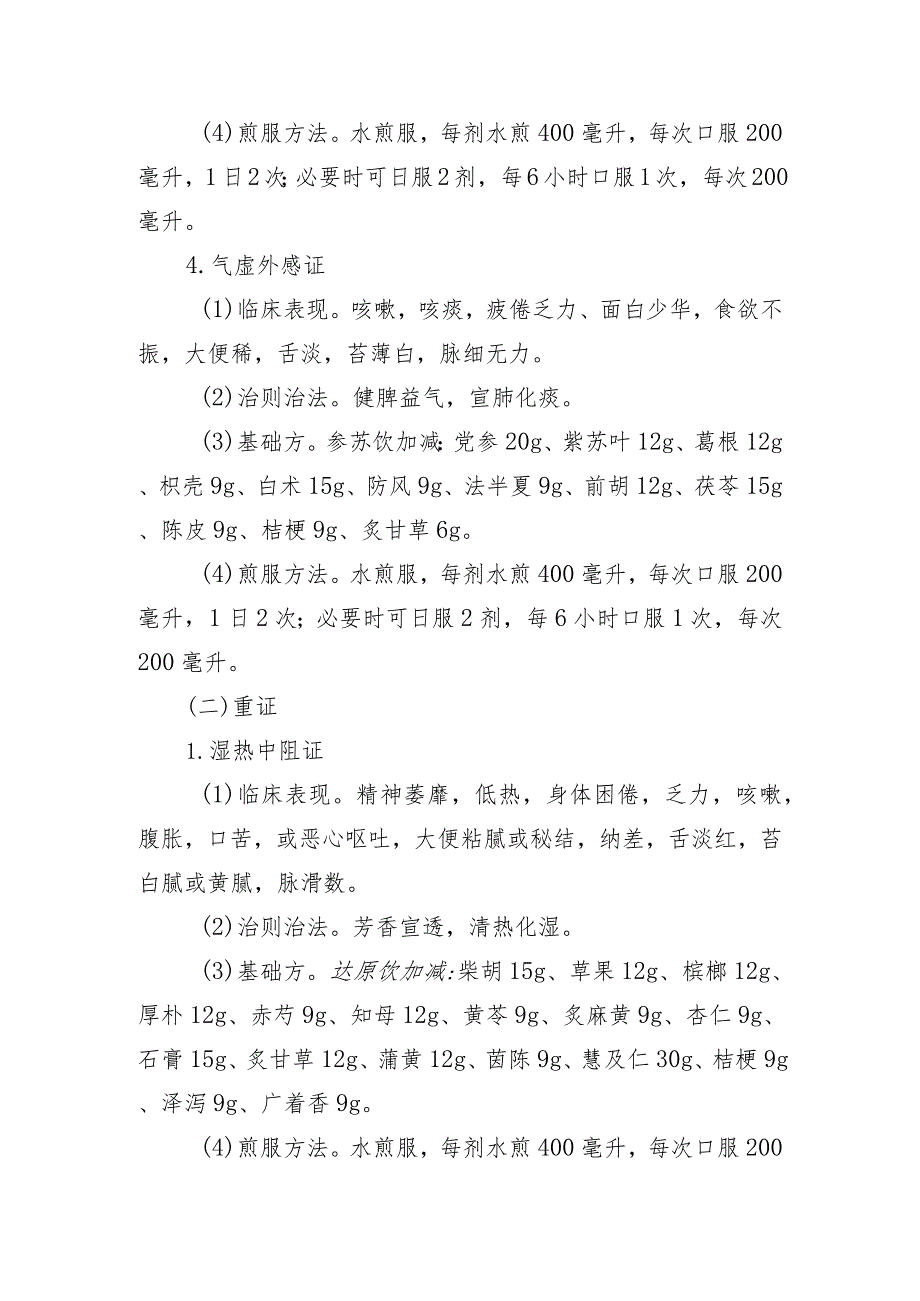 (4)煎服方法。水煎服，每剂水煎 400 毫升，每次口服 200
毫升，1 日 2 次；必要时可日服 2 剂，每 6 小时口服 1 次，每次 200
毫升。
4.气虚外感证
(1)临床表现。咳嗽，咳痰，疲倦乏力、面白少华，食欲不
振，大便稀，舌淡，苔薄白，脉细无力。
(2)治则治法。健脾益气，宣肺化痰。
(3)基础方。参苏饮加减：党参 20g、紫苏叶 12g、葛根 12g
、枳壳 9g、白术 15g、防风 9g、法半夏 9g、前胡 12g、茯苓 15g
、陈皮 9g、桔梗 9g、炙甘草 6g。
(4)煎服方法。水煎服，每剂水煎 400 毫升，每次口服 200
毫升，1 日 2 次；必要时可日服 2 剂，每 6 小时口服 1 次，每次
200 毫升。
(二)重证
1.湿热中阻证
(1)临床表现。精神萎靡，低热，身体困倦，乏力，咳嗽，
腹胀，口苦，或恶心呕吐，大便粘腻或秘结，纳差，舌淡红，苔
白腻或黄腻，脉滑数。
(2)治则治法。芳香宣透，清热化湿。
(3)基础方。达原饮加减:柴胡 15g、草果 12g、槟榔 12g、
厚朴 12g、赤芍 9g、知母 12g、黄苓 9g、炙麻黄 9g、杏仁 9g、
石膏 15g、炙甘草 12g、蒲黄 12g、茵陈 9g、慧及仁 30g、桔梗 9g
、泽泻 9g、广着香 9g。
(4)煎服方法。水煎服，每剂水煎 400 毫升，每次口服 200